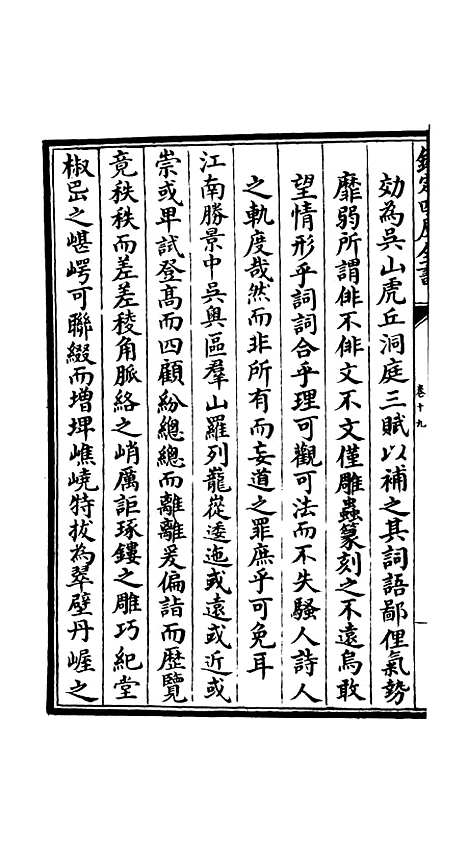 欽定四庫全書
卷十九
効為吳山虎丘洞庭三賦以補之其詞語鄙俚氣勢
靡弱所謂俳不俳文不文僅雕蟲篆刻之不遠烏敢
望情形乎詞詞合乎理可觀可法而不失騷人詩人
之軌度哉然而非所有而妄道之罪庶乎可免耳
江南勝景中吳奥區羣山羅列巃嵸逶迤或遠或近或
崇或卑試登髙而四顧紛總總而離離爰偏詣而歴覽
竟秩秩而差差稜角脈絡之峭厲詎琢鏤之雕巧紀堂
椒岊之嵁崿可聯綴而增埤嶕嶢特拔為翠壁丹崕之